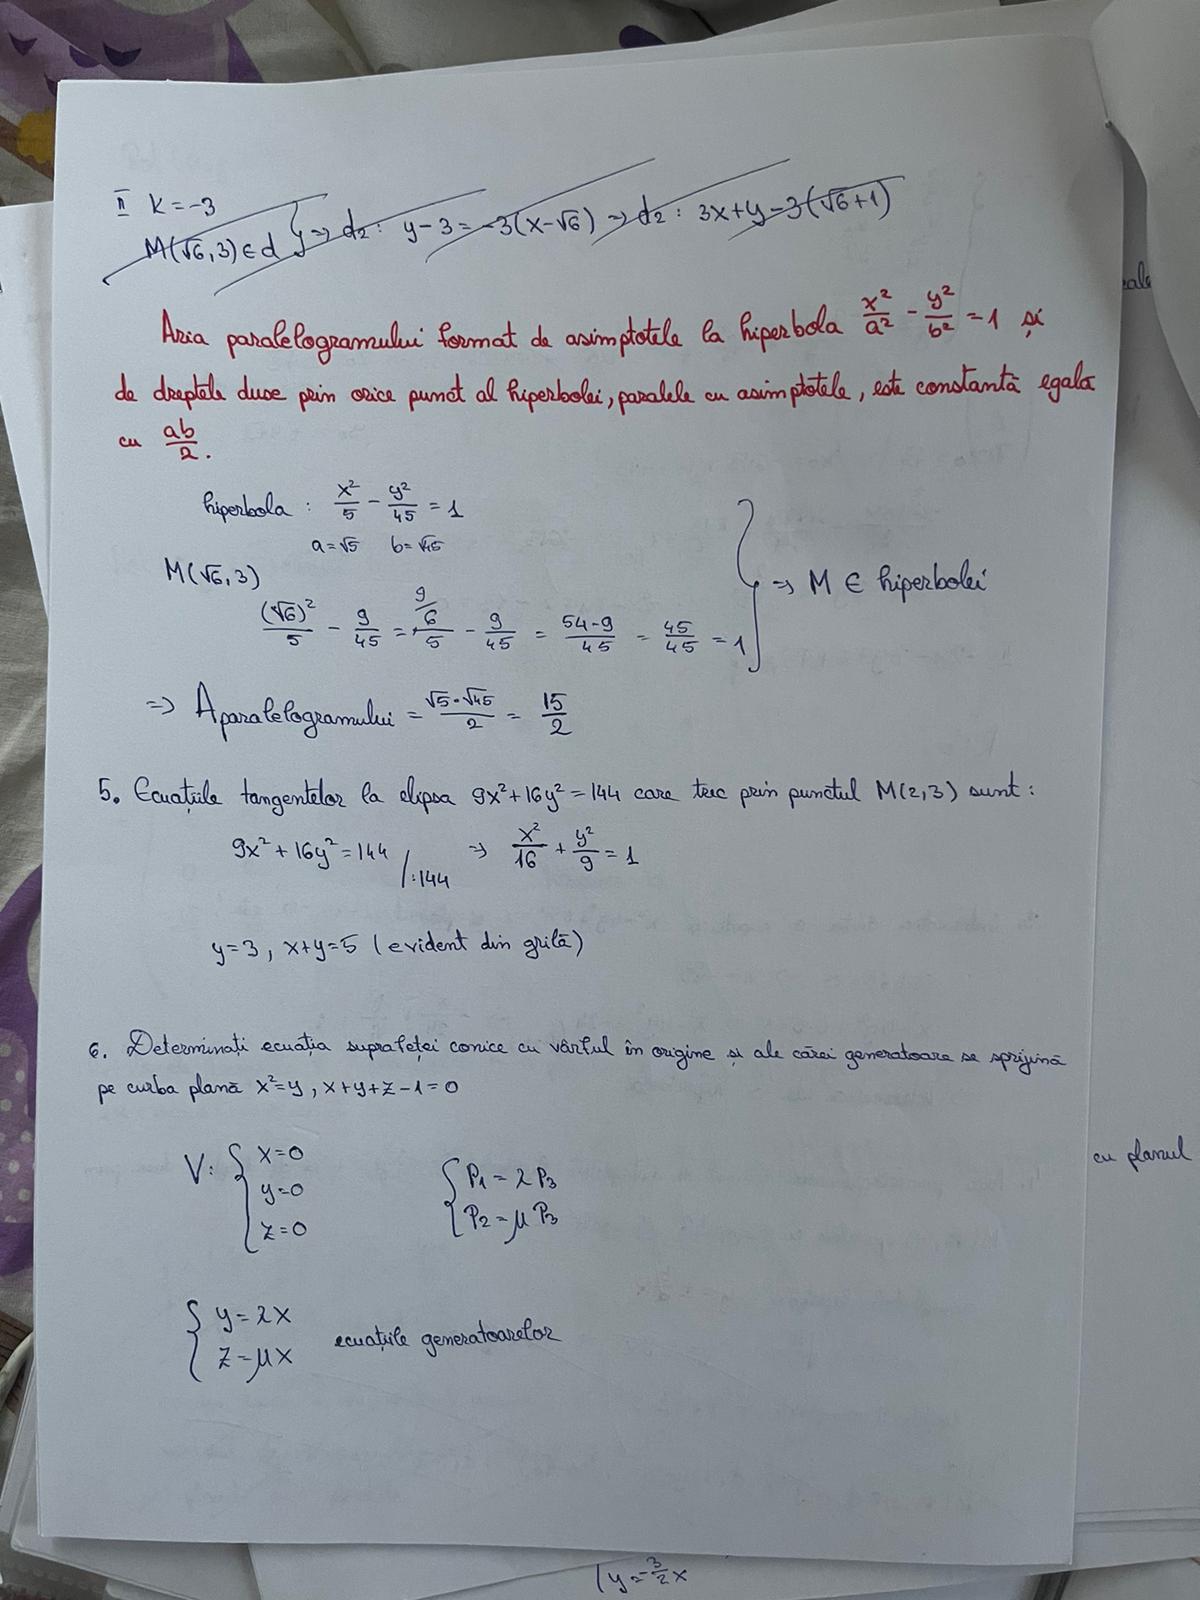 II K = -3
M(√6,3) ∈ d } => d2: y-3 = -3(x-√6) => d2: 3x+y-3(√6+1)
Aria paralelogramului format de asimptotele la hiperbola x²/a² - y²/b² = 1 și
de dreptele duse prin orice punct al hiperbolei, paralele cu asimptotele, este constantă egală
cu ab/2.
hiperbola : x²/5 - y²/45 = 1
a=√5 b=√45
M(√6,3)
(√6)²/5 - 9/45 = 9/6/5 - 9/45 = 54-9/45 = 45/45 = 1 } => M ∈ hiperbolei
=> Aparalelogramului = √5·√45/2 = 15/2
5. Ecuațiile tangentelor la elipsa 9x²+16y²=144 care trec prin punctul M(2,3) sunt:
9x²+16y²=144 /:144 => x²/16 + y²/9 = 1
y=3, x+y=5 (evident din grilă)
6. Determinați ecuația suprafeței conice cu vârful în origine și ale cărei generatoare se sprijină
pe curba plană x²=y, x+y+z-1=0
V: { x=0
y=0
z=0
{ P1 = λP3
P2 = μP3
{ y=λx
z=μx
ecuațiile generatoarelor
cu planul
y=-3/2x